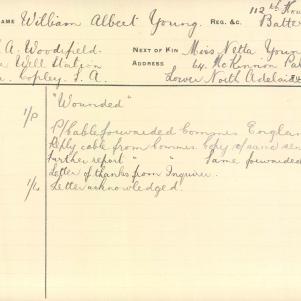 NAME William Albert Young. REG. &C. 112th How
Batter
A. Woodifield.
Well Station
Copley. S. A.
NEXT OF KIN Miss Netta Youn
ADDRESS 64. McKinnon Pa
Lower North Adelaide
"Wounded"
1/P P/Cable forwarded Commrs England
Reply cable from Commrs. Copy of same sen
Further report " " Same forwarded
Letter of thanks from Inquirer.
1/L Letter acknowledged.